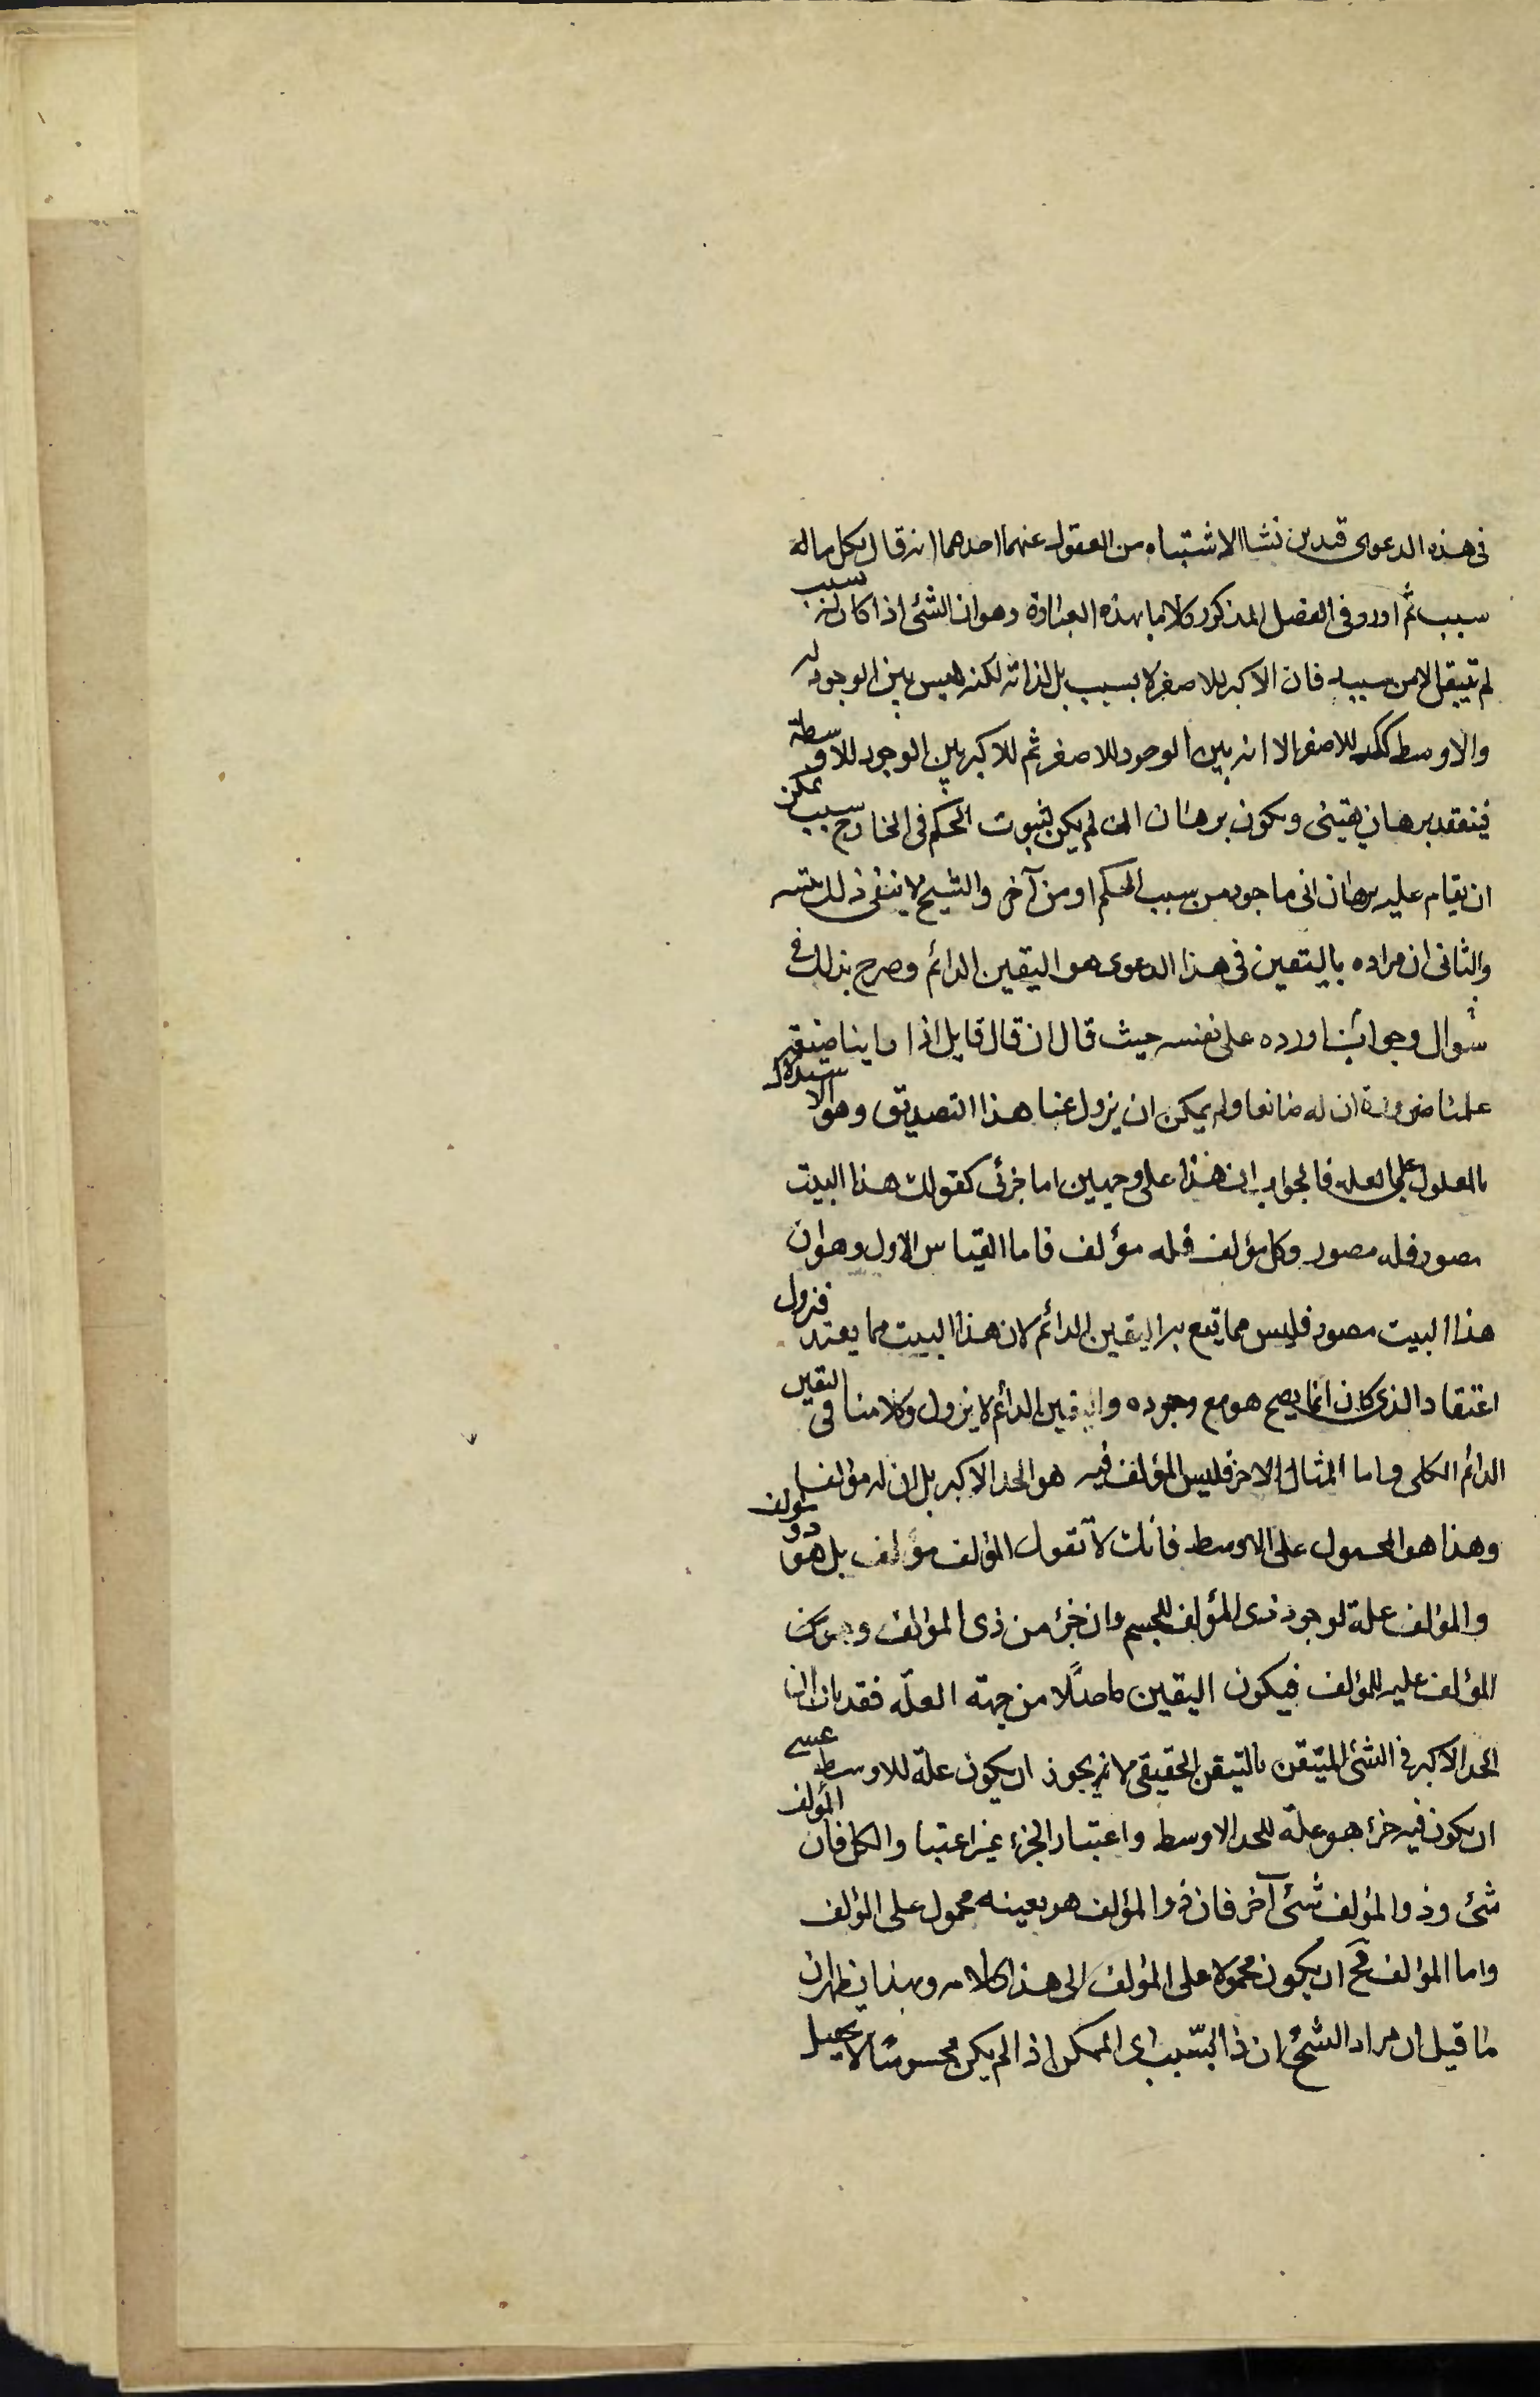 فى هذه الدعوى قيدين نشاا لاشتباه من الغفول عنهما احدهما انه قال كل ماله
سبب ثم اورد فى الفصل المذكور كلاما بهذه العبارة وهو ان الشئ اذا كان له سبب
لم تيقن الا من سببه فان الاكبر للاصغر لا بسبب بل لذاته لكنه ليس بين الوجود له
والاوسط كك للاصغر الا انه بين الوجود للاصغر ثم الاكبر بين الوجود للاوسط
فينعقد برهان يقينى ويكون برهان ان لم يكن لثبوت الحكم فى الخارج سبب يمكن
ان يقام عليه برهان انى ماخوذ من سبب الحكم او من آخر والشيخ لا ينفى ذلك
والثانى ان مراده باليقين فى هذا الدعوى هو اليقين الدائم وصرح بذلك فى
سؤال وجواب اورده على نفسه حيث قال ان قال قايل اذا راينا صنعة
علمنا ضرورة ان له صانعا ولم يمكن ان يزول عنا هذا التصديق وهو الاستدلال
بالمعلول على العله فالجواب ان هذا على وجهين اما جزئى كقولك هذا البيت
مصور فله مصور وكل مؤلف فله مؤلف فاما القياس الاول وهو ان
هذا البيت مصور فليس مما يقع به اليقين الدائم لان هذا البيت مما يفسد فيزول
اعتقاد الذى كان انما يصح هو مع وجوده واليقين الدائم لا يزول وكلامنا فى اليقين
الدائم الكلى واما المثال الاخر فليس المؤلف فيه هو الحد الاكبر بل ان له مؤلفا
وهذا هو المحمول على الاوسط فانك لا تقول المؤلف مؤلف بل هو ذو مؤلف
والمؤلف علة لوجود ذى المؤلف للجسم وان جزء من ذى المؤلف وهو
المؤلف عليه للمؤلف فيكون اليقين حاصلا من جهة العلّة فقد بان ان
الحد الاكبر فى الشئ المتيقن باليقين الحقيقى لا يجوز ان يكون علة للاوسط عسى
ان يكون فيه جزء هو علة للحد الاوسط واعتبار الجزء غير اعتبار الكل فان المؤلف
شئ وذو المؤلف شئ آخر فان ذو المؤلف هو بعينه محمول على المؤلف
واما المؤلف فمح ان يكون محمولا على المؤلف الى هذا كلامه وبهذا يظهر ان
ما قيل ان مراد الشيخ ان ذا السبب اى الممكن اذا لم يكن محسوسا لا يحصل